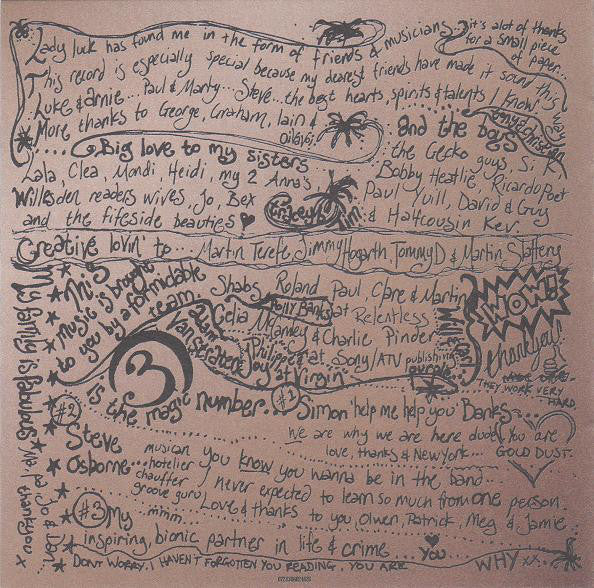 Lady luck has found me in the form of friends & musicians...
it's alot of thanks
for a small piece
of paper...
This record is especially special because my dearest friends have made it sound this way
Luke & arnie... Paul & Marty... Steve... the best hearts, spirits & talents I know
More thanks to George, Graham, Iain &
and the boys
Tony & Christian
Big love to my sisters
the Gecko guys, Si K
Lala, Clea, Mandi, Heidi, my 2 Anna's
Bobby Heatlie, Ricardo Poet
Willesden readers wives, Jo, Bex
Paul Yuill, David & Guy
and the fifeside beauties
& Halfcousin Kev.
Creative lovin' to... Martin Terefe, Jimmy Hogarth, Tommy D & Martin Slattery
My family is fabulous
Ma, pa, Jo & Dan
I thankyou x
This
music is brought
to you by a formidable
team
Shabs, Roland, Paul, Clare & Martin
Molly Banks at Relentless
Celia McCamley & Charlie Pinder
Philippa at Sony/ATV publishing
Joy at Virgin
WOW!
thankyou!
THEY WORK VERY
HARD
3
is the magic number...
#1
Simon 'help me help you' Banks...
We are why we are here dude. You are
love, thanks & New York... GOLD DUST.
#2
Steve
Osborne...
musician
hotelier
chauffer
groove guru
you know you wanna be in the band...
I never expected to learn so much from one person
mmm...
Love & thanks to you, Olwen, Patrick, Meg & Jamie
#3 My
inspiring, bionic partner in life & crime
You
DONT WORRY. I HAVENT FORGOTTEN YOU READING. YOU ARE
WHY xx